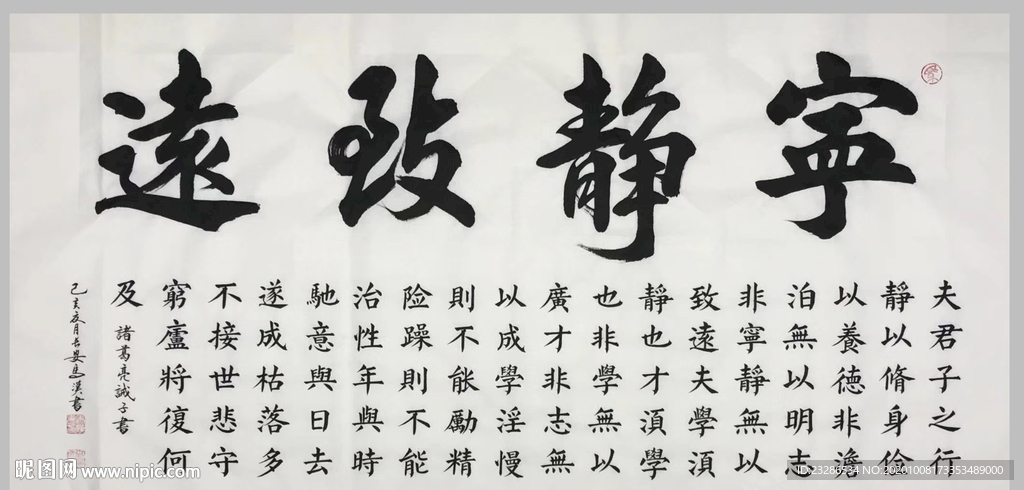 寧靜致遠
夫君子之行
靜以脩身俭
以養德非澹
泊無以明志
非寧靜無以
致遠夫學湏
靜也才湏學
也非學無以
廣才非志無
以成學淫慢
則不能勵精
险躁則不能
治性年與時
馳意與日去
遂成枯落多
不接世悲守
窮廬將復何
及 諸葛亮誡子書
己亥月漢書
昵图网 www.nipic.com
ID:23286534 NO:20201008173353489000